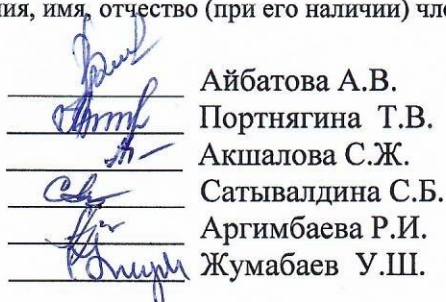 имя, отчество (при его наличии)
Айбатова А.В.
Портнягина Т.В.
Акшалова С.Ж.
Сатывалдина С.Б.
Аргимбаева Р.И.
Жумабаев У.Ш.